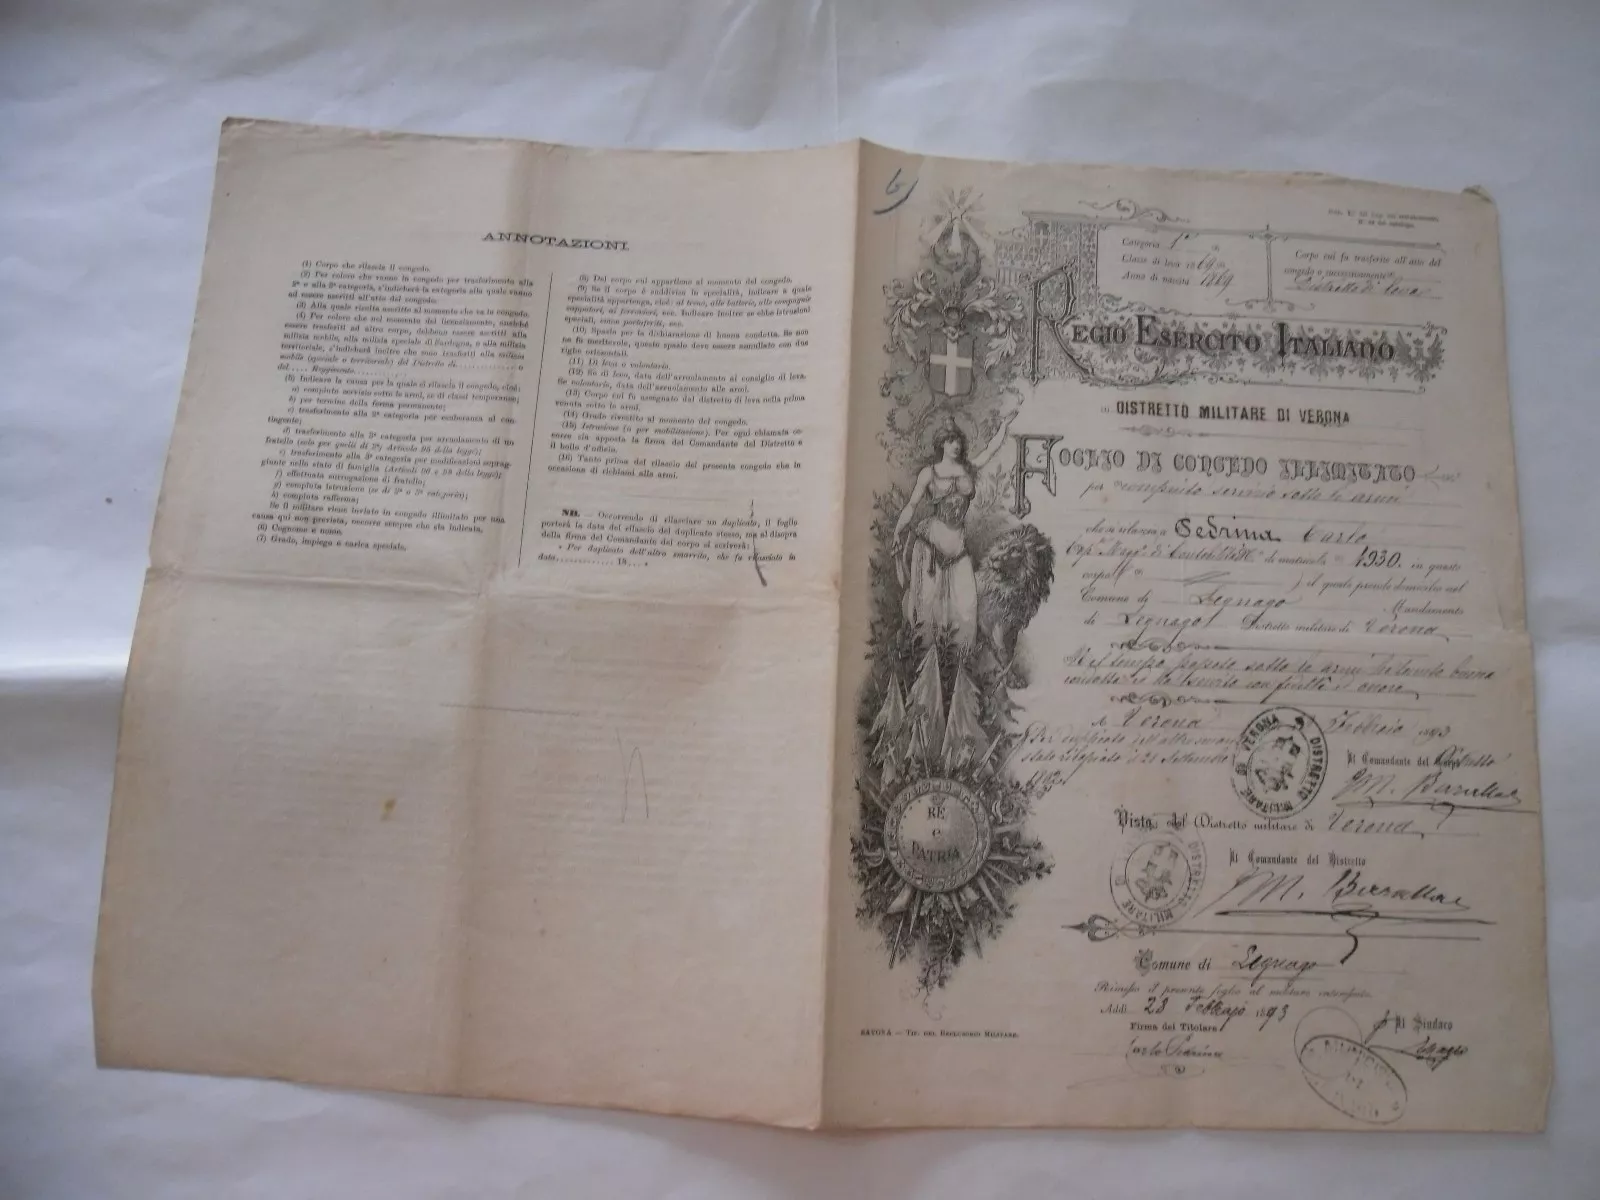 ANNOTAZIONI.
(1) Corpo che rilascia il congedo.
(2) Per coloro che vanno in congedo per trasferimento alla
2ª e alla 3ª categoria, s'indicherà la categoria alla quale vanno
ad essere ascritti all'atto del congedo.
(3) Alla quale risulta ascritto al momento che va in congedo.
(4) Per coloro che nel momento del licenziamento, anziché
essere trasferiti ad altro corpo, debbono essere ascritti alla
milizia mobile, alla milizia speciale di Sardegna, o alla milizia
territoriale, s'indicherà inoltre che sono trasferiti alla milizia
mobile (speciale o territoriale) del Distretto di............ o
del .... Reggimento............
(5) Indicare la causa per la quale si rilascia il congedo, cioè:
a) compiuto servizio sotto le armi, se di classi temporanee;
b) per termine della ferma permanente;
c) trasferimento alla 2ª categoria per esuberanza al con-
tingente;
d) trasferimento alla 3ª categoria per arruolamento di un
fratello (solo per quelli di 2ª; Articolo 95 della legge);
e) trasferimento alla 3ª categoria per modificazioni soprag-
giunte nello stato di famiglia (Articoli 96 e 98 della legge);
f) effettuata surrogazione di fratello;
g) compiuta istruzione (se di 2ª o 3ª categoria);
h) compiuta rafferma;
Se il militare viene inviato in congedo illimitato per una
causa qui non prevista, occorre sempre che sia indicata.
(6) Cognome e nome.
(7) Grado, impiego o carica speciale.
(8) Del corpo cui appartiene al momento del congedo.
(9) Se il corpo è suddiviso in specialità, indicare a quale
specialità appartenga, cioè: al treno, alle batterie, alle compagnie
zappatori, ai ferrovieri, ecc. Indicare inoltre se ebbe istruzioni
speciali, come portaferiti, ecc.
(10) Spazio per la dichiarazione di buona condotta. Se non
ne fu meritevole, questo spazio deve essere annullato con due
righe orizzontali.
(11) Di leva o volontario.
(12) Se di leva, data dell'arruolamento al consiglio di leva.
Se volontario, data dell'arruolamento alle armi.
(13) Corpo cui fu assegnato dal distretto di leva nella prima
venuta sotto le armi.
(14) Grado rivestito al momento del congedo.
(15) Istruzione (o per mobilitazione). Per ogni chiamata oc-
corre sia apposta la firma del Comandante del Distretto e
il bollo d'ufficio.
(16) Tanto prima del rilascio del presente congedo che in
occasione di richiami alle armi.
NB. — Occorrendo di rilasciare un duplicato, il foglio
porterà la data del rilascio del duplicato stesso, ma al disopra
della firma del Comandante del corpo si scriverà:
« Per duplicato dell'altro smarrito, che fu rilasciato in
data............ 18... »
Categoria 1ª
Classe di leva 1869
Anno di nascita 1869
Corpo cui fu trasferito all'atto del
congedo o successivamente
Distretto di
REGIO ESERCITO ITALIANO
DISTRETTO MILITARE DI VERONA
FOGLIO DI CONGEDO ILLIMITATO
per compiuto servizio sotto le armi
che si rilascia a Pedrina Carlo
Cap. Magg. di matricola 4930. in questo
corpo ) il quale prende domicilio nel
Comune di Legnago Mandamento
di Legnago Distretto militare di Verona
Nel tempo passato sotto le armi ha tenuto buona
condotta ed ha servito con fedeltà ed onore
A Verona Febbraio 1893
Per duplicato dell'altro
stato rilasciato il 21 Settembre
1892
DISTRETTO MILITARE DI VERONA
Il Comandante del Distretto
RE
e
PATRIA
Visto del Distretto militare di Verona
DISTRETTO MILITARE
Il Comandante del Distretto
Comune di Legnago
Rimesso il presente foglio al militare intestato.
Addì 23 Febbraio 1893
Firma del Titolare
Carlo Pedrina
Il Sindaco
SAVONA — TIP. DEL RECLUSORIO MILITARE.